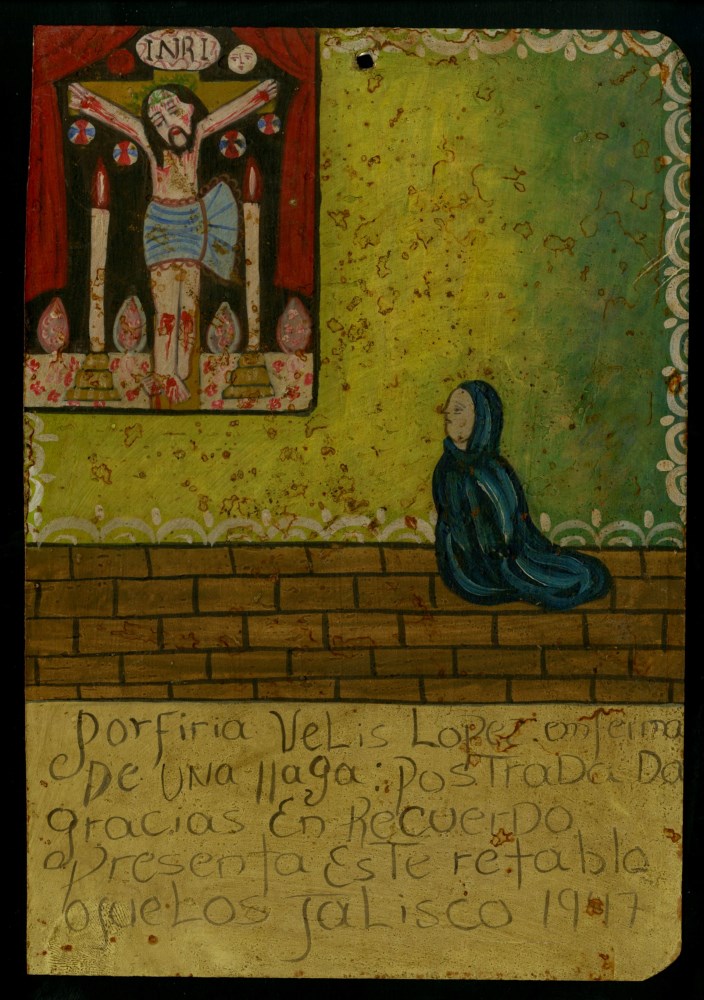 INRI
porfiria Velis Lopez enferma
De una llaga: postrada Da
gracias En Recuerdo
presenta Este retablo
ojuelos jalisco